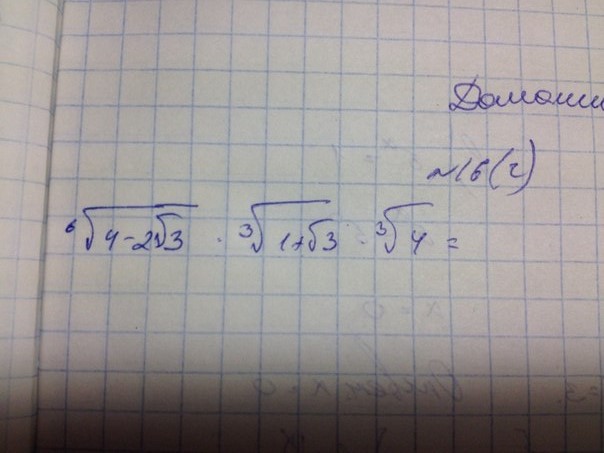 Домашн
№16(г)
⁶√(4-2√3) · ³√(1+√3) · ³√4 =